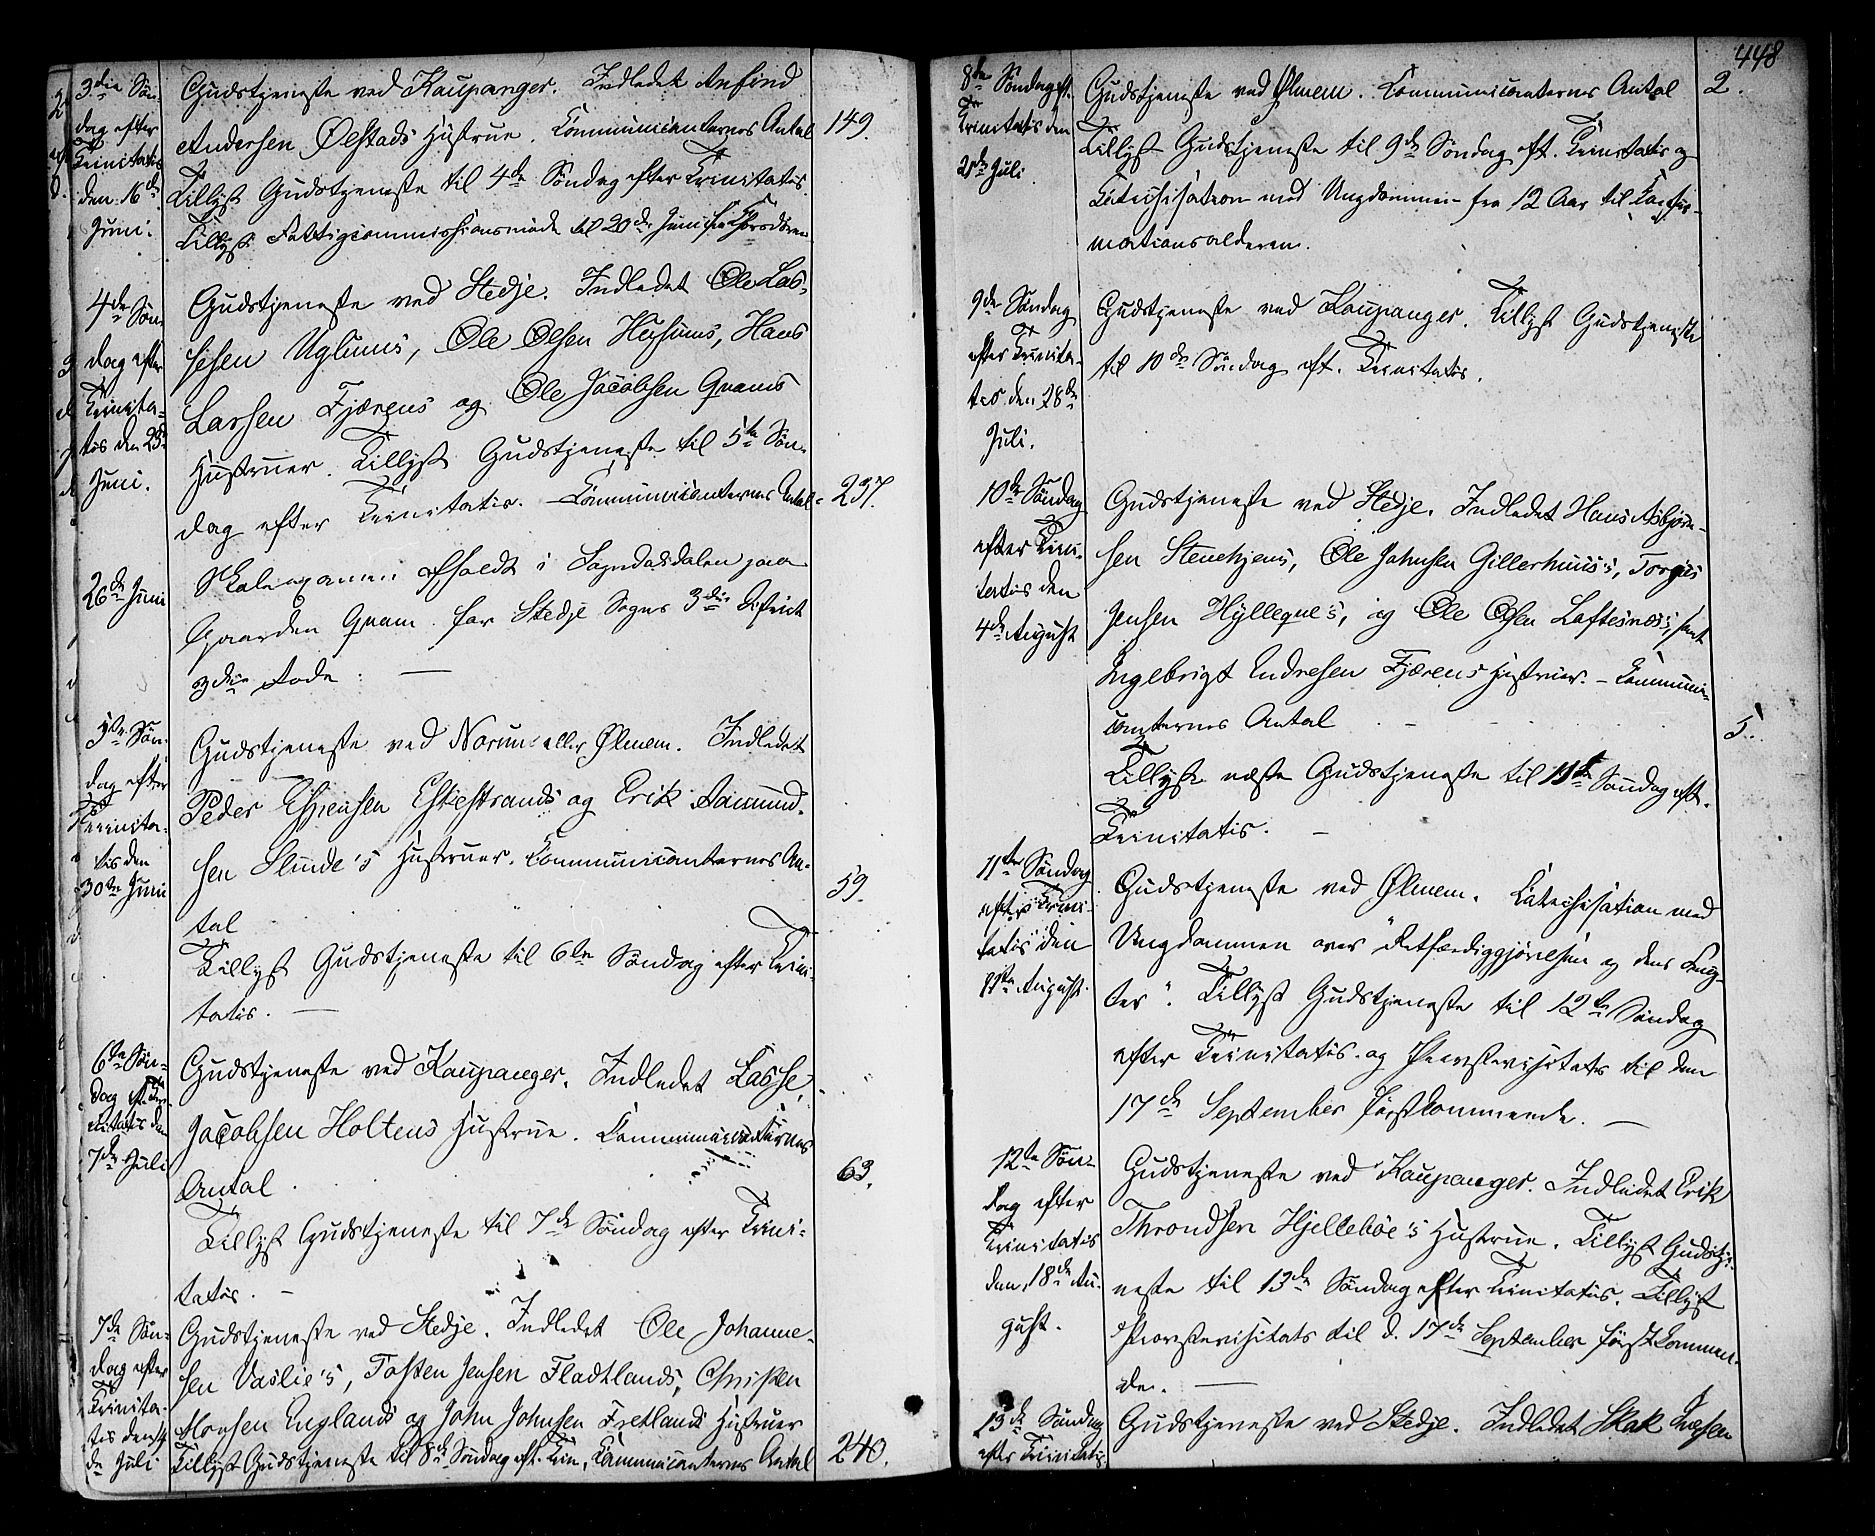 3die Søn-
dag efter
Trinitatis
den 16de
Juni.
Gudstjeneste ved Kaupanger. Indledet Anfind
Andersen Ølstads Hustrue. Communicanternes Antal
149.
Tillyst Gudstjeneste til 4de Søndag efter Trinitatis.
Tillyst Fattigcommissionsmøde til 20de Juni
4de Søn-
dag efter
Trinita-
tis den 23de
Juni.
Gudstjeneste ved Stedje. Indledet Ole Las-
sesen Uglums, Ole Olsen Husums, Hans
Larsen Fjærens og Ole Jacobsen Qvams
Hustruer. Tillyst Gudstjeneste til 5te Søn-
dag efter Trinitatis. - Communicanternes Antal
237.
26de Juni
Skoleexamen afholdt i Sogndalsdalen paa
Gaarden Qvam for Stedje Sogns 3die District
3die Rode. —
5te Søn-
dag efter
Trinita-
tis den
30te Juni
Gudstjeneste ved Norum eller Ølmem. Indledet
Peder Espensen Eskestrands og Erik Aamund-
sen Slinde's Hustruer. Communicanternes An-
tal
59.
Tillyst Gudstjeneste til 6te Søndag efter Trini-
tatis. —
6te Søn-
dag eft. Tri-
nitatis den
7de Juli
Gudstjeneste ved Kaupanger. Indledet Lasse
Jacobsen Holtens Hustrue. Communicanternes
Antal.
63.
Tillyst Gudstjeneste til 7de Søndag efter Trini-
tatis. —
7de Søn-
dag efter
Trinita-
tis den 14
de Juli
Gudstjeneste ved Stedje. Indledet Ole Johanne-
sen Vaslie's, Tosten Jensen Fladtlands, Christen
Monsen Englands og John Johnsen Fretlands Hustruer
Tillyst Gudstjeneste til 8de Søndag eft. Trin. Communicanternes Antal
240.
448
8de Søndag eft.
Trinitatis den
21de Juli
Gudstjeneste ved Ølmem. Communicanternes Antal
2.
Tillyst Gudstjeneste til 9de Søndag eft. Trinitatis og
Catechisation med Ungdommen fra 12 Aar til Confir-
mationsalderen.
9de Søndag
efter Trinita-
tis den 28de
Juli.
Gudstjeneste ved Kaupanger. Tillyst Gudstjeneste
til 10de Søndag eft. Trinitatis.
10de Søndag
efter Trini-
tatis den
4de August
Gudstjeneste ved Stedje. Indledet Hans Asbjørn-
sen Stenehjems, Ole Johnsen Gillerhuus's, Torgers
Jensen Hylleqve's, og Ole Olsen Loftesnæs's, samt
Ingebrigt Endresen Fjærens Hustruer. - Communi-
canternes Antal
5.
Tillyst næste Gudstjeneste til 11te Søndag eft.
Trinitatis. —
11te Søndag
efter Trini-
tatis den
11te August.
Gudstjeneste ved Ølmem. Catechisation med
Ungdommen over "Retfærdiggjørelsen og dens Frug-
ter". Tillyst Gudstjeneste til 12te Søndag
efter Trinitatis og Provstevisitats til den
17de September førstkommende. —
12te Søn-
dag efter
Trinitatis
den 18de Au-
gust.
Gudstjeneste ved Kaupanger. Indledet Erik
Throndsen Hjellebøe's Hustrue. Tillyst Gudstje-
neste til 13de Søndag efter Trinitatis. Tillyst
Provstevisitats til d. 17de September førstkommen-
de. —
13de Søndag
efter Trinitatis
Gudstjeneste ved Stedje. Indledet Skak